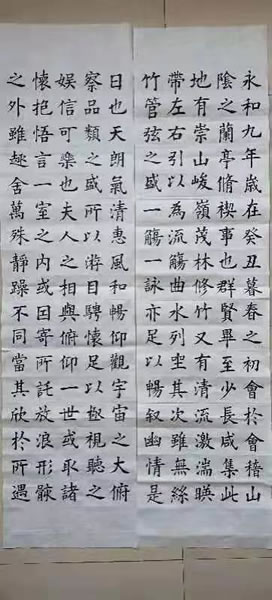 永和九年歲在癸丑暮春之初會於會稽山
陰之蘭亭脩禊事也群賢畢至少長咸集此
地有崇山峻嶺茂林修竹又有清流激湍暎
帶左右引以為流觴曲水列坐其次雖無絲
竹管弦之盛一觴一詠亦足以暢敘幽情是
日也天朗氣清惠風和暢仰觀宇宙之大俯
察品類之盛所以游目騁懷足以極視聽之
娛信可樂也夫人之相與俯仰一世或取諸
懷抱悟言一室之內或因寄所託放浪形骸
之外雖趣舍萬殊靜躁不同當其欣於所遇